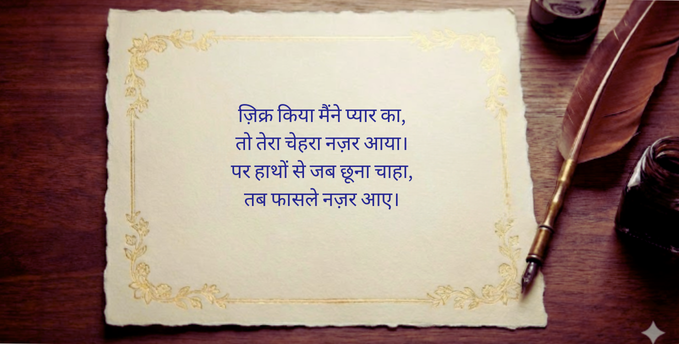 ज़िक्र किया मैंने प्यार का,
तो तेरा चेहरा नज़र आया।
पर हाथों से जब छूना चाहा,
तब फासले नज़र आए।